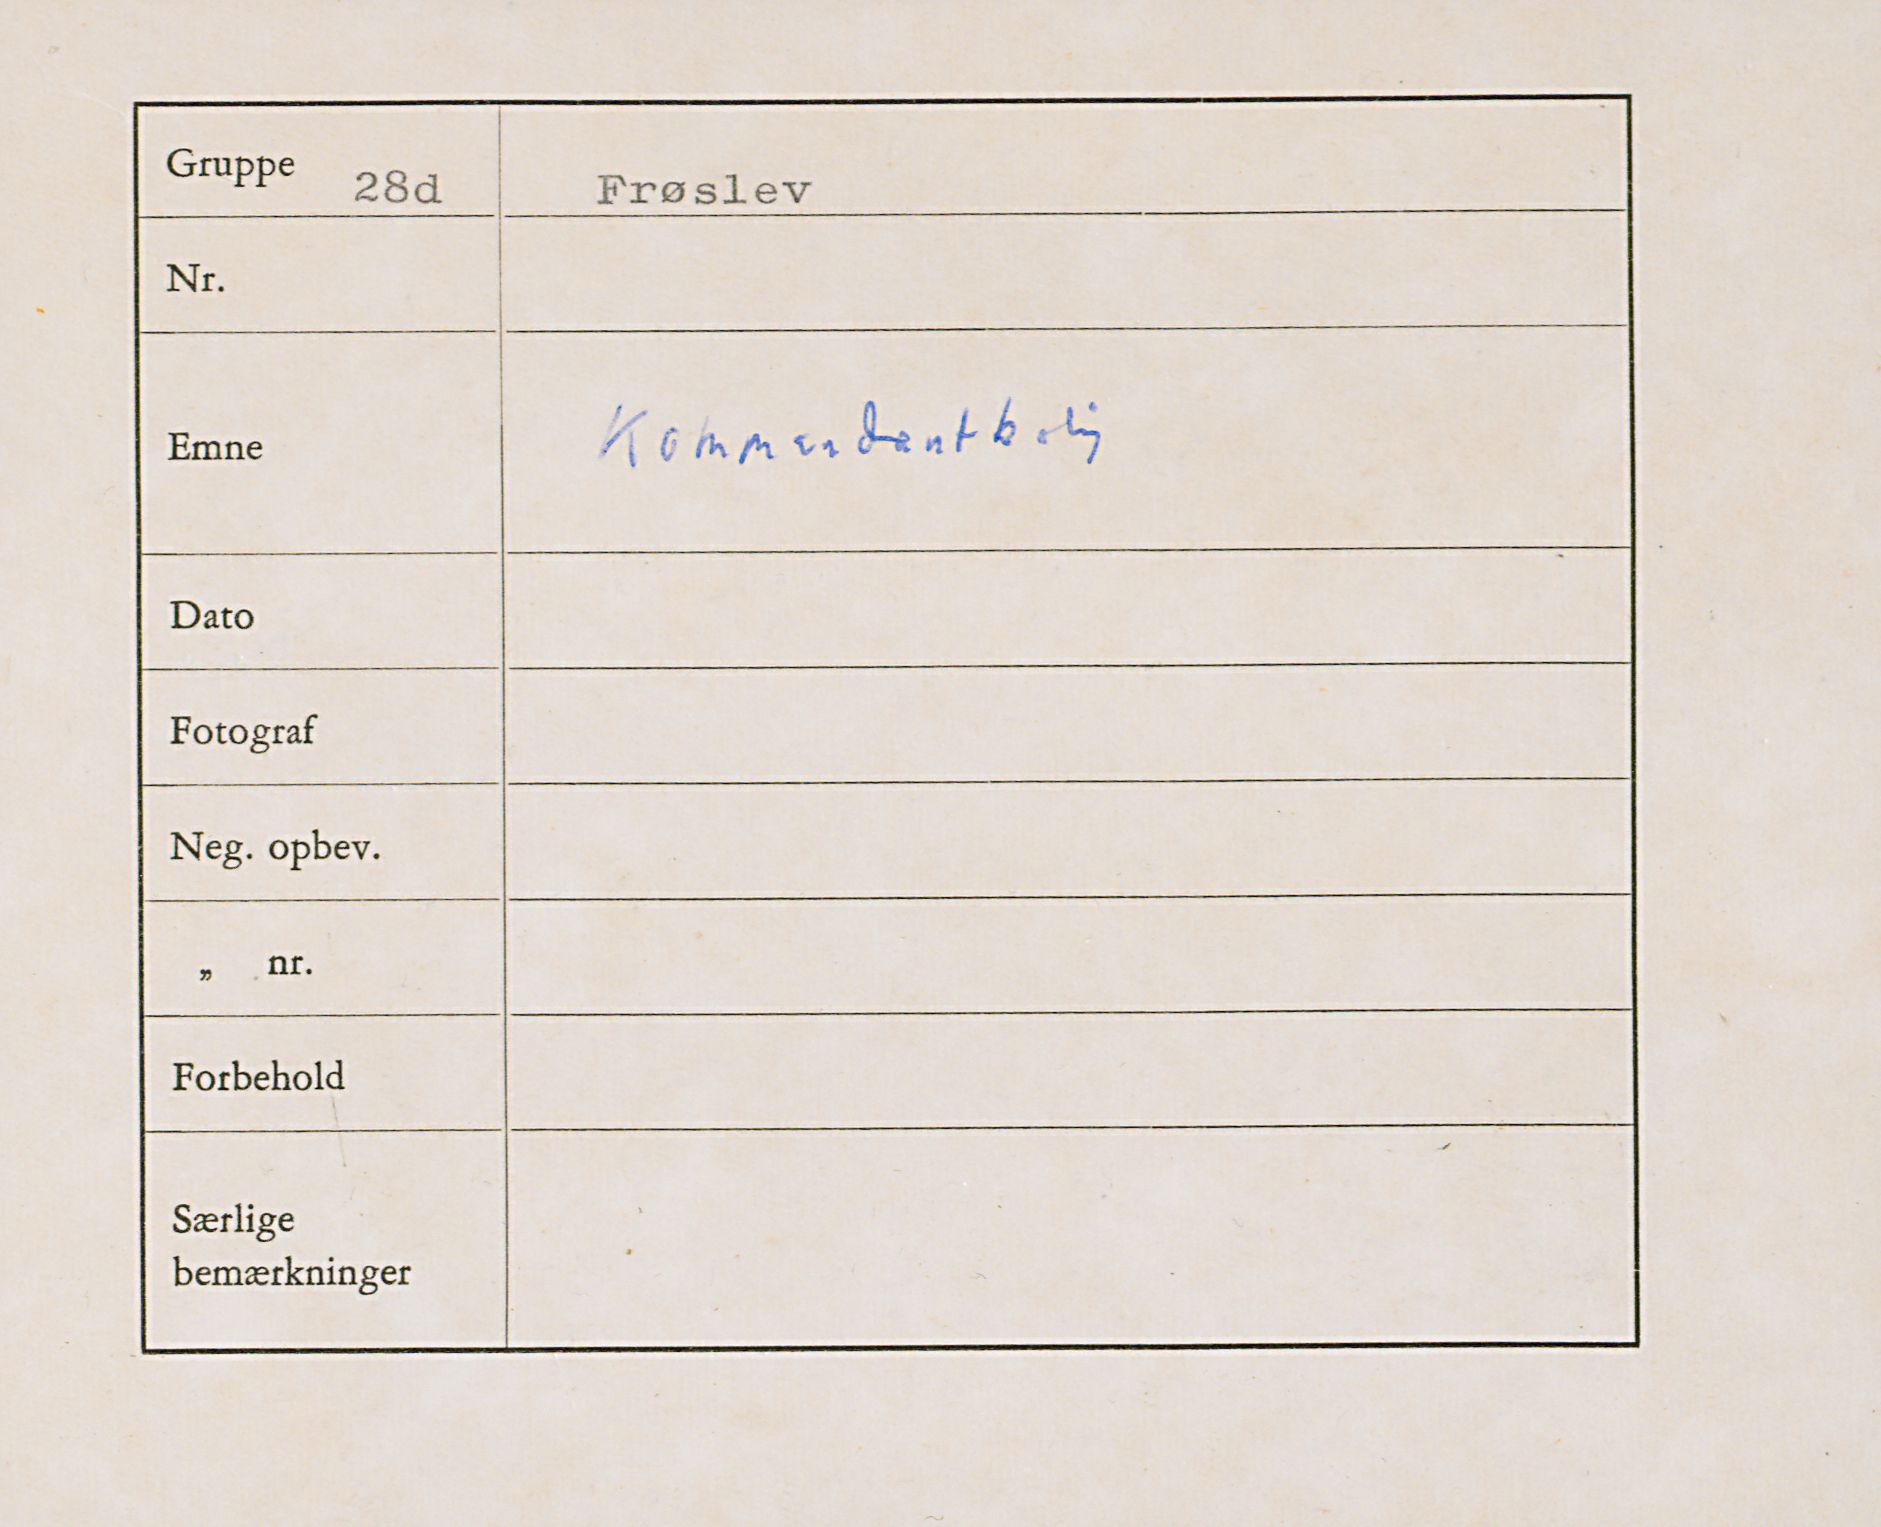 Gruppe 28d Frøslev
Nr.
Emne Kommandantbolig
Dato
Fotograf
Neg. opbev.
„ nr.
Forbehold
Særlige
bemærkninger